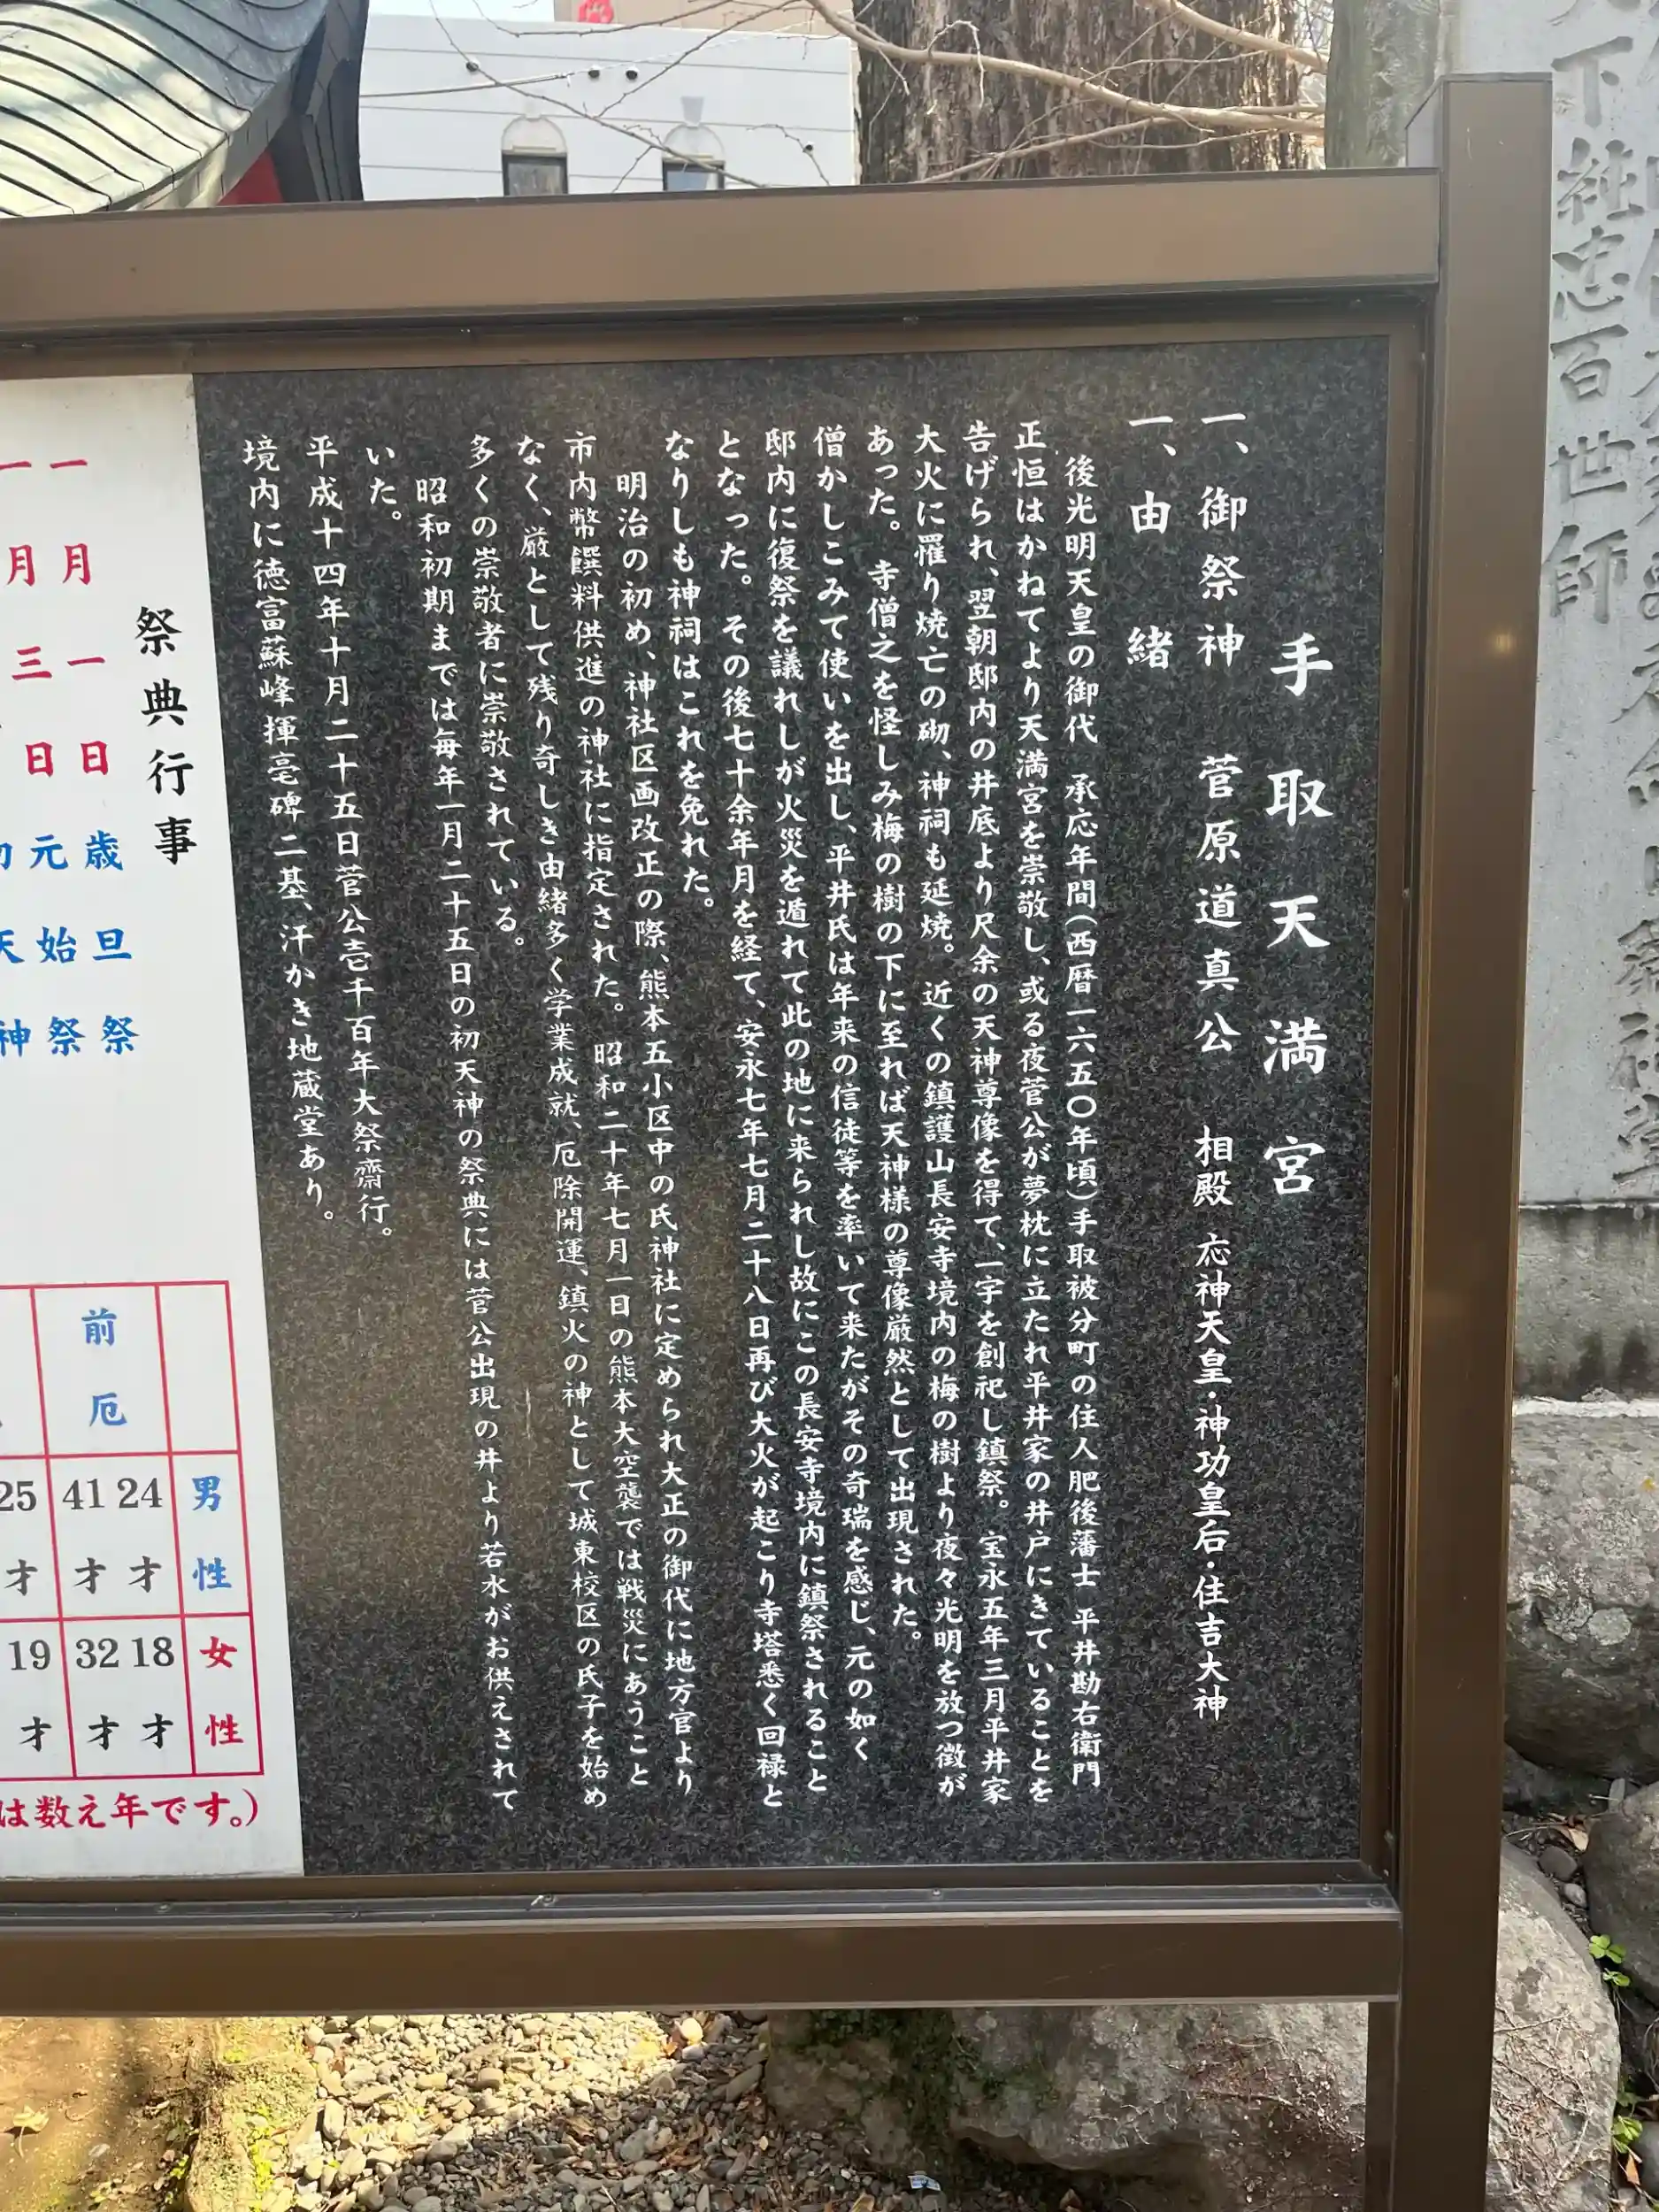 手取天満宮
一、御祭神 菅原道真公 相殿 応神天皇・神功皇后・住吉大神
一、由緒
後光明天皇の御代 承応年間(西暦一六五〇年頃)手取被分町の住人肥後藩士 平井勘右衛門
正恒はかねてより天満宮を崇敬し、或る夜菅公が夢枕に立たれ平井家の井戸にきていることを
告げられ、翌朝邸内の井底より尺余の天神尊像を得て、一宇を創祀し鎮祭。宝永五年三月平井家
大火に罹り焼亡の砌、神祠も延焼。近くの鎮護山長安寺境内の梅の樹より夜々光明を放つ徴が
あった。寺僧之を怪しみ梅の樹の下に至れば天神様の尊像厳然として出現された。
僧かしこみて使いを出し、平井氏は年来の信徒等を率いて来たがその奇瑞を感じ、元の如く
邸内に復祭を議れしが火災を遁れて此の地に来られし故にこの長安寺境内に鎮祭されること
となった。その後七十余年月を経て、安永七年七月二十八日再び大火が起こり寺塔悉く回禄と
なりしも神祠はこれを免れた。
明治の初め、神社区画改正の際、熊本五小区中の氏神社に定められ大正の御代に地方官より
市内幣饌料供進の神社に指定された。昭和二十年七月一日の熊本大空襲では戦災にあうこと
なく、厳として残り奇しき由緒多く学業成就、厄除開運、鎮火の神として城東校区の氏子を始め
多くの崇敬者に崇敬されている。
昭和初期までは毎年一月二十五日の初天神の祭典には菅公出現の井より若水がお供えされて
いた。
平成十四年十月二十五日菅公壱千百年大祭齋行。
境内に徳富蘇峰揮毫碑二基、汗かき地蔵堂あり。
祭典行事
一月一日 歳旦祭
一月三日 元始祭
天神
前厄
男性 24才 41才 25才
女性 18才 32才 19才
は数え年です。)
下純忠百世師